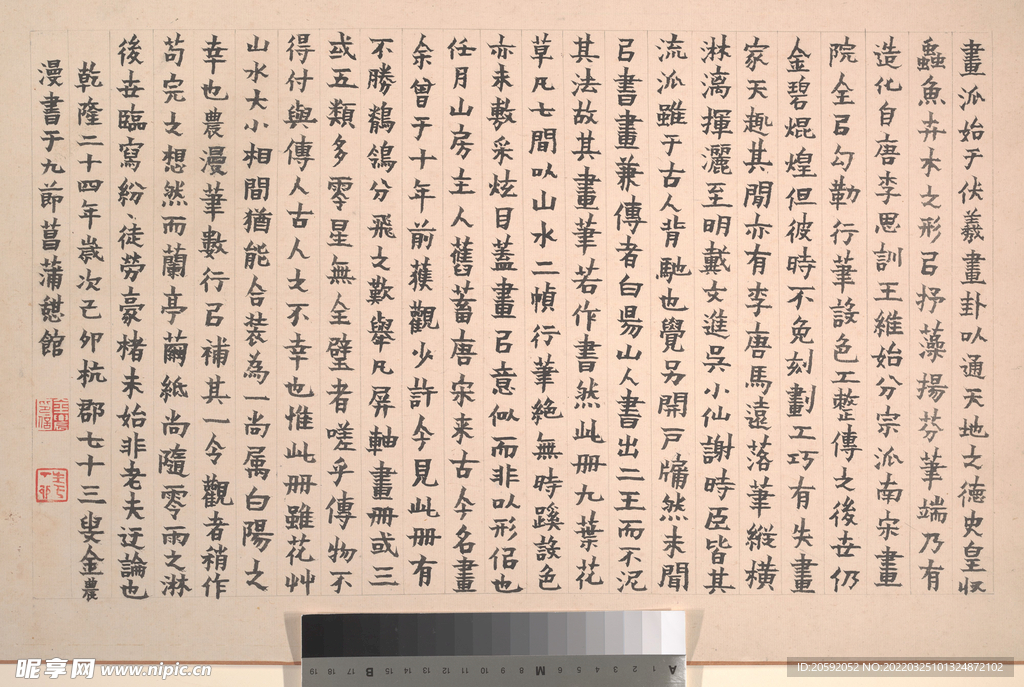 畫派始于伏羲畫卦以通天地之德史皇收
蟲魚卉木之形㠯抒藻揚芬筆端乃有
造化自唐李思訓王維始分宗派南宋畫
院全㠯勾勒行筆設色工整傳之後世仍
金碧焜煌但彼時不免刻劃工巧有失畫
家天趣其間亦有李唐馬遠落筆縱橫
淋漓揮灑至明戴文進吳小仙謝時臣皆其
流派雖于古人背馳也覺另開戶牖然未聞
㠯書畫兼傳者白昜山人書出二王而不泥
其法故其畫筆若作書然此冊九葉花
草凡七間以山水二幀行筆絕無時蹊設色
亦未敷采炫目蓋畫㠯意似而非以形侣也
任月山房主人舊蓄唐宋来古今名畫
余曾于十年前獲觀少許今見此冊有
不勝鶺鴒分飛之歎舉凡屏軸畫冊或三
或五類多零星無全璧者嗟乎傳物不
得付與傳人古人之不幸也惟此冊雖花艸
山水大小相間猶能合裝為一尚属白陽之
幸也農漫筆數行㠯補其一令觀者稍作
苟完之想然而蘭亭繭紙尚隨零雨之淋
後世臨寫紛〻徒勞豪楮未始非老夫迂論也
乾隆二十四年歲次己卯杭郡七十三叟金農
漫書于九節菖蒲憇館
昵享网 www.nipic.cn
ID:20592052 NO:20220325101324872102
A 1 2 3 4 5 6 M 8 9 10 11 12 13 14 15 B 17 18 19